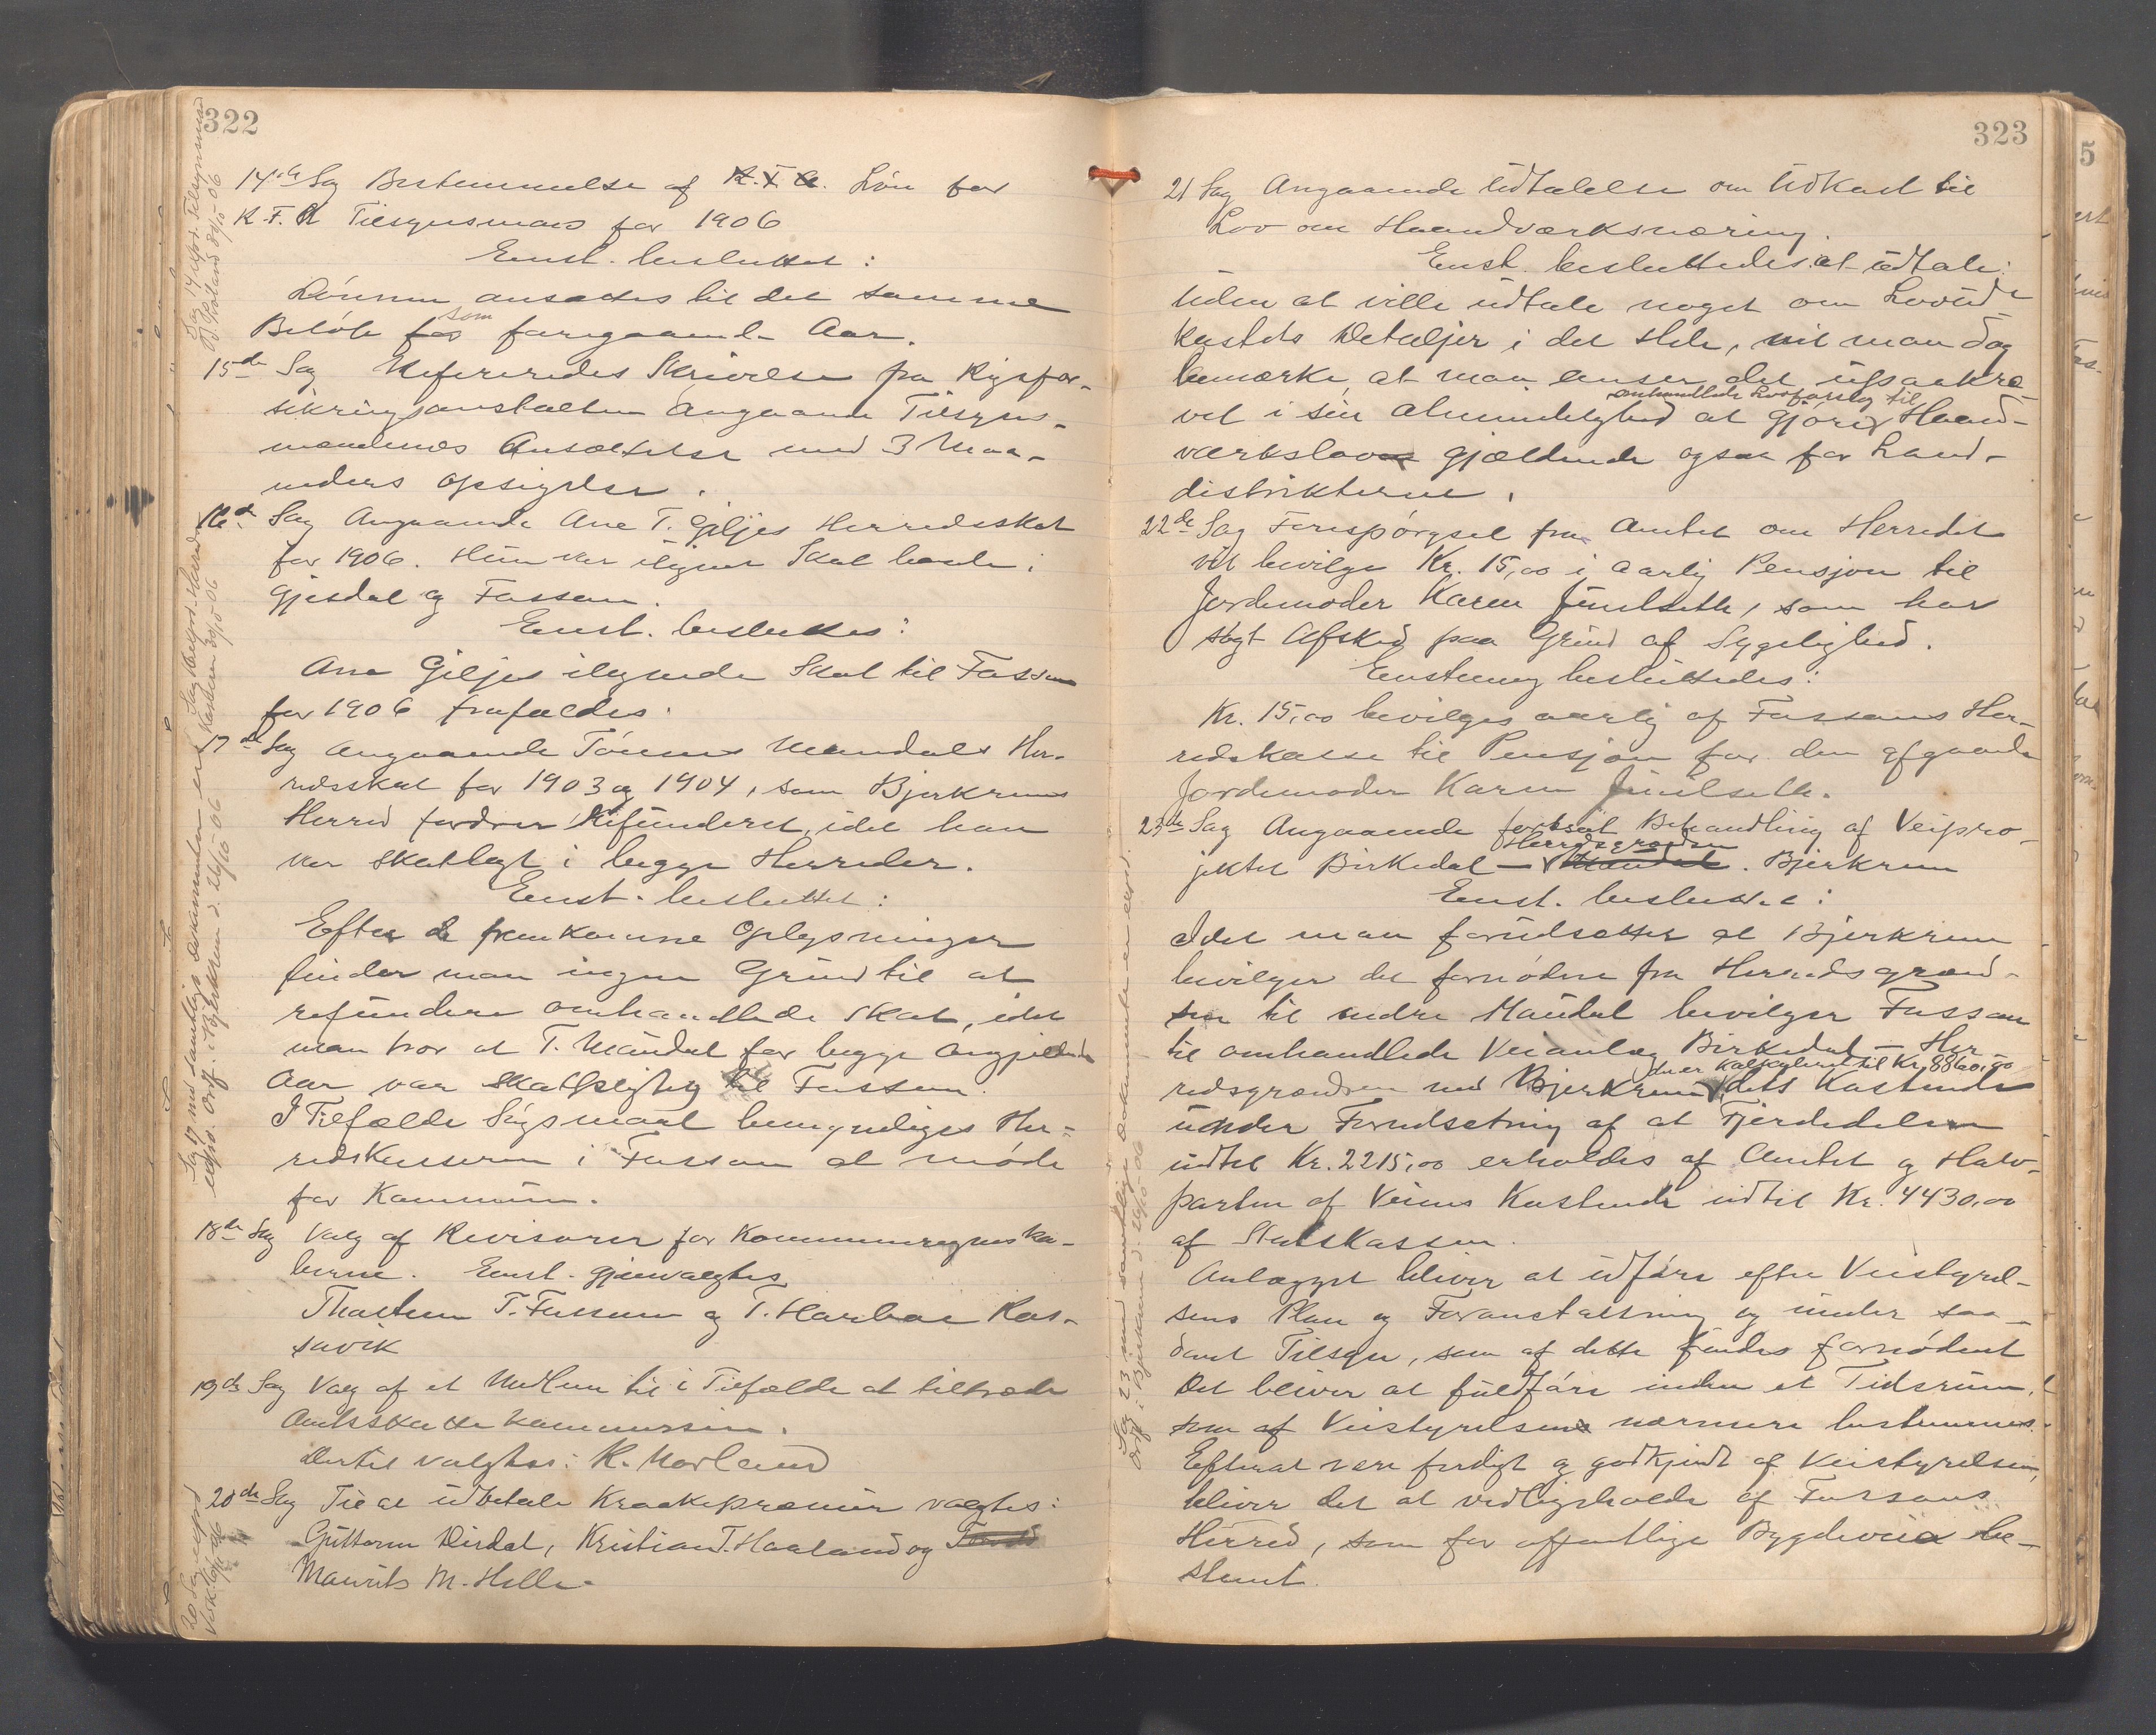 322
14de Sag Bestemmelse af K. F. A. Løn for
K. F. A Tilsynsmand for 1906
Enst. besluttet:
Lønnen ansættes til det samme
Beløb som foregaaende Aar.
15de Sag Refereredes Skrivelse fra Rigsfor-
sikringsanstalten angaaende Tilsyns-
mændenes Ansættelse med 3 Maa-
neders Opsigelse.
16de Sag Angaaende Ane T. Giljes Herredsskat
for 1906. Hun var ilignet Skat baade i
Gjesdal og Fossan.
Enst. besluttes:
Ane Giljes ilignede Skat til Fossan
for 1906 frafaldes.
17de Sag Angaaende Tønnes Maudals Her-
redsskat for 1903 og 1904, som Bjerkreims
Herred fordrer Refunderet, idet han
var skatlagt i begge Herreder.
Enst. besluttet:
Efter de fremkomne Oplysninger
finder man ingen Grund til at
refundere omhandlede Skat, idet
man tror at T. Maudal for begge angjeldende
Aar var Skatpligtig til Fossan.
I Tilfælde Søgsmaal bemyndiges Her-
redskasseren i Fossan at møde
for Kommunen.
18de Sag Valg af Revisorer for Kommuneregnska-
berne. Enst. gjenvalgtes
Thorstein T. Fossan og T. Haabai Ras-
savik
19de Sag Valg af et Medlem til i Tilfælde at tiltræde
Amtsskattekommissionen.
Dertil valgtes: K. Morland
20de Sag Til at udbetale Kraakepræmier valgtes:
Guttorm Dirdal, Kristian T. Haaland og
Maurits M. Helle.
Sag 14 utskr. Tilsynsmand
Haaland 30/10-06
Sag 16 utskr. Herreds-
kasseren 30/10 06
Sag 17 med samtlige Dokumenter er
utskr. Ordf. i Bjerkreim d. 26/10-06
20 Sag utskr
323
21 Sag Angaaende Udtalelse om Udkast til
Lov om Haandværksnæring.
Enst. besluttedes at udtale:
Uden at ville udtale noget om Lovud-
kastets Detaljer i det Hele, vil man dog
bemærke, at man anser det upaakræ-
vet i sin Almindelighed at gjøre omhandlede Lovforslag til Haand-
værkslov gjældende ogsaa for Land-
distrikterne.
22de Sag Forespørgsel fra Amtet om Herredet
vil bevilge Kr. 15,00 i aarlig Pensjon til
Jordemoder Karen Juulseth, som har
søgt Afsked paa Grund af Sygelighed.
Enstemmig besluttedes:
Kr. 15,00 bevilges aarlig af Fossans Her-
redskasse til Pensjon for den afgaaende
Jordemoder Karen Juulseth.
23de Sag Angaaende fortsat Behandling af Veipro-
jektet Birkedal — Herredsgrændsen Maudal. Bjerkreim
Enst. besluttet:
Idet man forudsætter at Bjerkreim
bevilger det fornødne fra Herredsgrænd-
sen til indre Maudal bevilger Fossan
til omhandlede Veianlæg Birkedal — Her-
redsgrændsen mod Bjerkreim der er kalkyleret til Kr. 8860,00 dets Kostende
under Forudsetning af at Fjerdedelen
indtil Kr. 2215,00 erholdes af Amtet og Halv-
parten af Veiens Kostende indtil Kr. 4430,00
af Statskassen.
Anlægget bliver at udføre efter Veistyrel-
sens Plan og Foranstaltning og under saa-
dant Tilsyn, som af dette findes fornødent
Det bliver at fuldføre inden et Tidsrum,
som af Veistyrelsen nærmere bestemmes.
Efterat være færdigt og godkjendt af Veistyrelsen,
bliver det at vedligeholde af Fossans
Herred, som for offentlige Bygdeveie be-
stemt.
Sag 23 med samtlige Dokumenter er utskr.
Ordf. i Bjerkreim d. 26/10-06
5